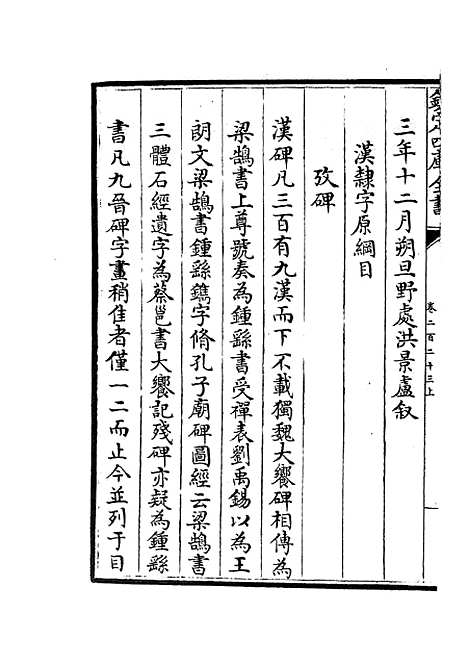 欽定四庫全書
卷二百二十三上
三年十二月朔旦野處洪景盧叙
漢隸字原綱目
攷碑
漢碑凡三百有九漢而下不載獨魏大饗碑相傳為
梁鵠書上尊號奏為鍾繇書受禪表劉禹錫以為王
朗文梁鵠書鍾繇鐫字脩孔子廟碑圖經云梁鵠書
三體石經遺字為蔡邕書大饗記殘碑亦疑為鍾繇
書凡九晉碑字畫稍隹者僅一二而止今並列于目